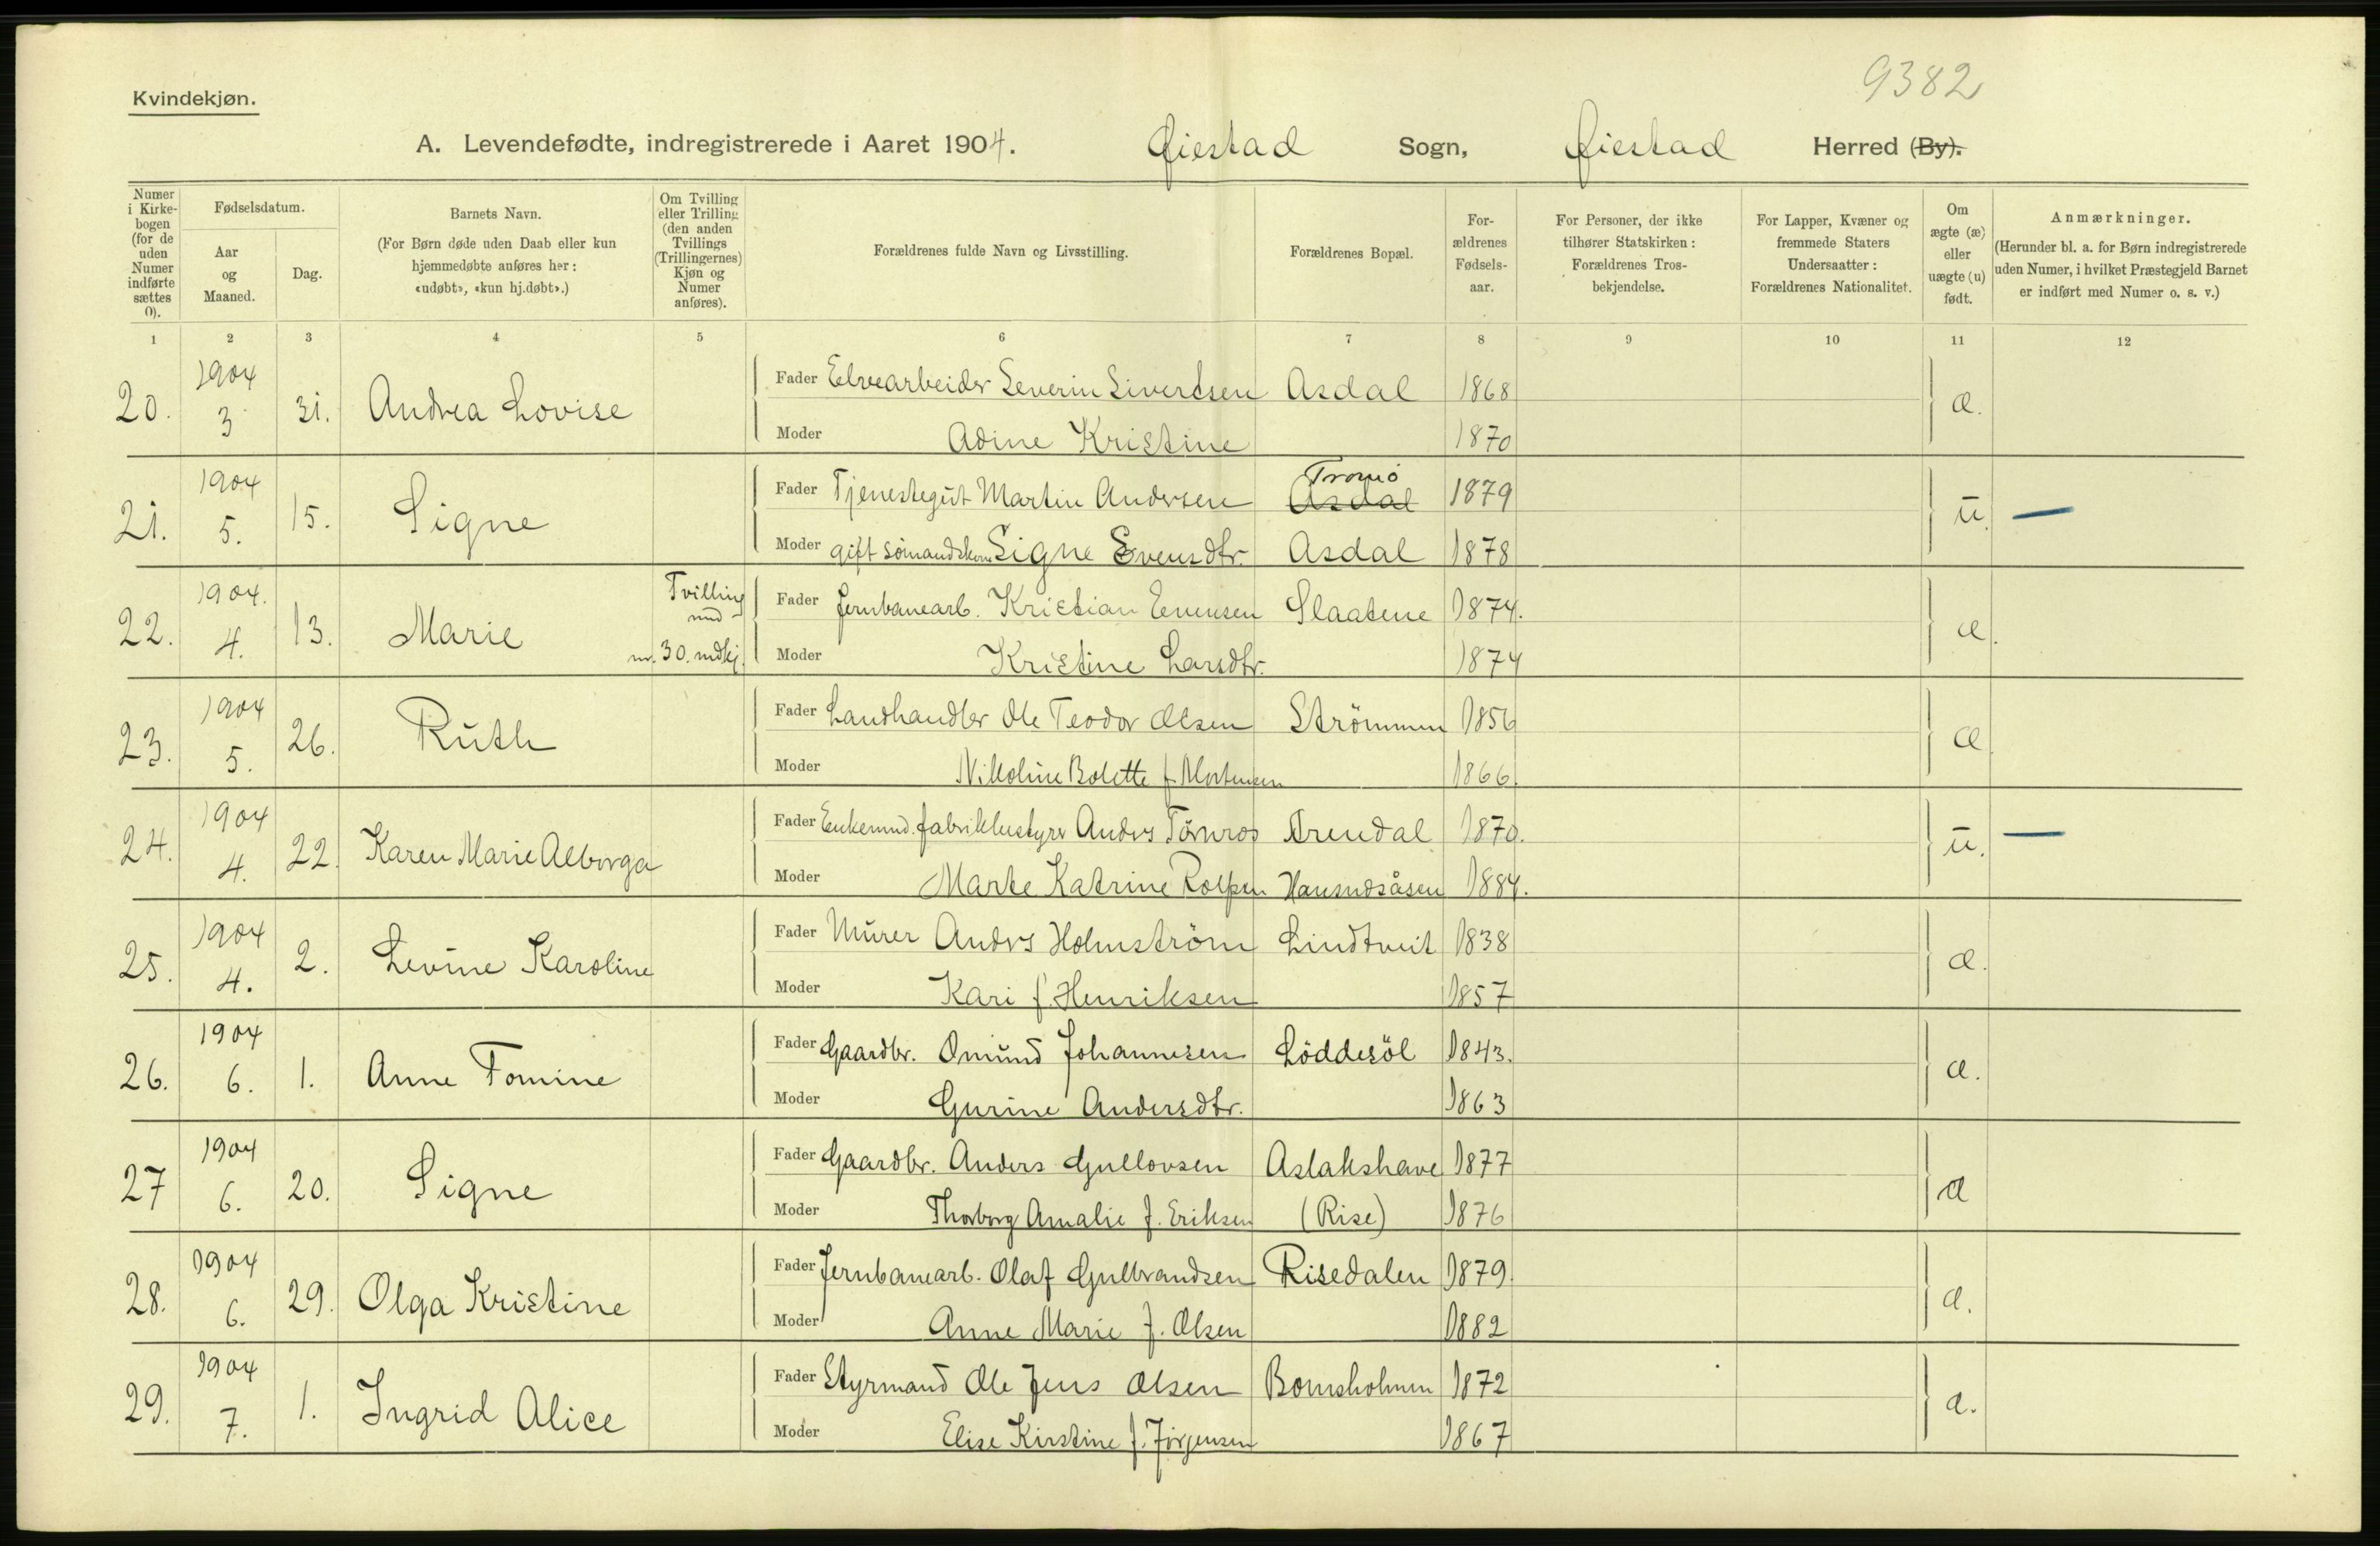 9382
Kvindekjøn.
A. Levendefødte, indregistrerede i Aaret 1904. Øiestad Sogn, Øiestad Herred (By).
Numer i Kirkebogen (for de uden Numer indførte sættes 0).
Fødselsdatum.
Aar og Maaned.
Dag.
Barnets Navn.
(For Børn døde uden Daab eller kun hjemmedøbte anføres her: «udøbt», «kun hj.døbt».)
Om Tvilling eller Trilling (den anden Tvillings (Trillingernes) Kjøn og Numer anføres).
Forældrenes fulde Navn og Livsstilling.
Forældrenes Bopæl.
Forældrenes Fødselsaar.
For Personer, der ikke tilhører Statskirken: Forældrenes Trosbekjendelse.
For Lapper, Kvæner og fremmede Staters Undersaatter: Forældrenes Nationalitet.
Om ægte (æ) eller uægte (u) født.
Anmærkninger.
(Herunder bl. a. for Børn indregistrerede uden Numer, i hvilket Præstegjeld Barnet er indført med Numer o. s. v.)
1 2 3 4 5 6 7 8 9 10 11 12
20. 1904 3 31. Andrea Lovise Fader Elvearbeider Severin Sivertsen Asdal 1868 æ.
Moder Adine Kristine 1870
21. 1904 5. 15. Signe Fader Tjenestegut Martin Andersen Tromö Asdal 1879 u. —
Moder gift sömandskone Signe Evensdtr. Asdal 1878
22. 1904. 4. 13. Marie Tvilling med nr. 30. mdkj. Fader Jernbanearb. Kristian Evensen Slaatene 1874. æ.
Moder Kristine Larsdtr. 1874
23. 1904 5. 26. Ruth Fader Landhandler Ole Teodor Olsen Strömmen 1856 æ
Moder Nikoline Bolette f. Mortensen 1866.
24. 1904 4. 22. Karen Marie Alborga Fader Enkemd. fabrikbestyrer Anders Törnros Arendal 1870. u. —
Moder Marte Katrine 1884.
25. 1904 4. 2. Levine Karoline Fader Murer Anders Holmström Lindtveit 1838 æ.
Moder Kari f. Henriksen 1857
26. 1904 6. 1. Anne Tomine Fader Gaardbr. Omund Johannesen Löddesöl 1843. æ.
Moder Gurine Andersdtr. 1863
27 1904 6. 20. Signe Fader Gaardbr. Anders Gullovsen Aslakshave 1877 æ
Moder Thorborg Amalie f. Eriksen (Rise) 1876
28. 1904 6. 29. Olga Kristine Fader Jernbanearb. Olaf Gulbrandsen Risedalen 1879. æ.
Moder Anne Marie f. Olsen 1882
29. 1904 7. 1. Ingrid Alice Fader Styrmand Ole Jens Olsen Bomsholmen 1872 æ.
Moder Elise Kirstine f. Jörgensen 1867